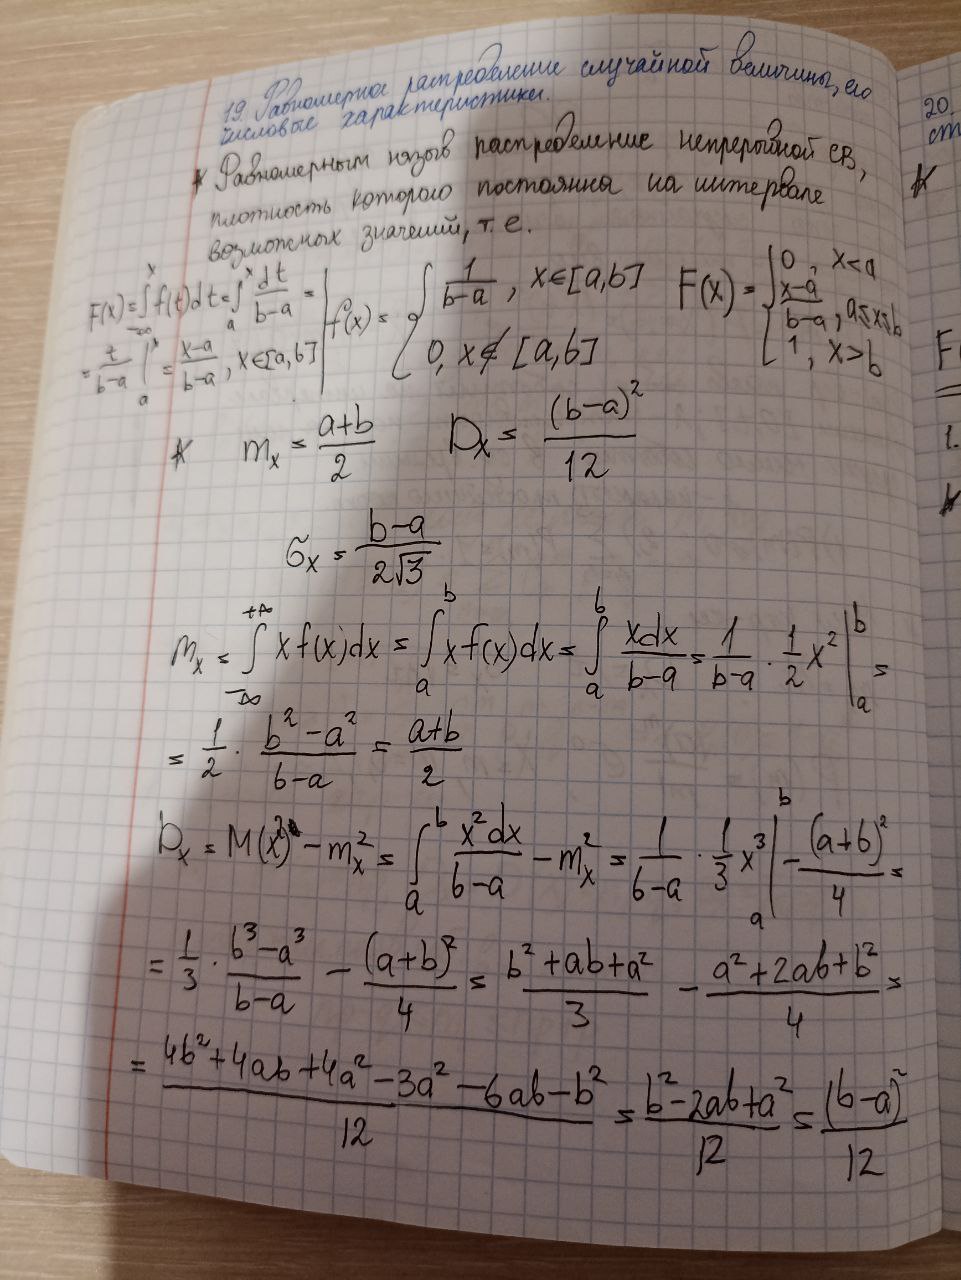 19. Равномерное распределение случайной величины, его
числовые характеристики.
* Равномерным назыв распределение непрерывной СВ,
плотность которого постоянна на интервале
возможных значений, т.е.
F(x) = ∫_{-∞}^{x} f(t)dt = ∫_{a}^{x} dt/(b-a) =
= t/(b-a) |_{a}^{x} = (x-a)/(b-a), x∈[a,b]
f(x) = { 1/(b-a), x∈[a,b]
0, x∉[a,b]
F(x) = { 0, x<a
(x-a)/(b-a), a≤x≤b
1, x>b
* m_x = (a+b)/2 D_x = (b-a)²/12
σ_x = (b-a)/(2√3)
m_x = ∫_{-∞}^{+∞} x f(x)dx = ∫_{a}^{b} x f(x)dx = ∫_{a}^{b} xdx/(b-a) = 1/(b-a) · 1/2 x² |_{a}^{b} =
= 1/2 · (b²-a²)/(b-a) = (a+b)/2
D_x = M(x²) - m_x² = ∫_{a}^{b} x²dx/(b-a) - m_x² = 1/(b-a) · 1/3 x³ |_{a}^{b} - (a+b)²/4 =
= 1/3 · (b³-a³)/(b-a) - (a+b)²/4 = (b²+ab+a²)/3 - (a²+2ab+b²)/4 =
= (4b²+4ab+4a²-3a²-6ab-b²)/12 = (b²-2ab+a²)/12 = (b-a)²/12
20.
ст
*
F
1.
*